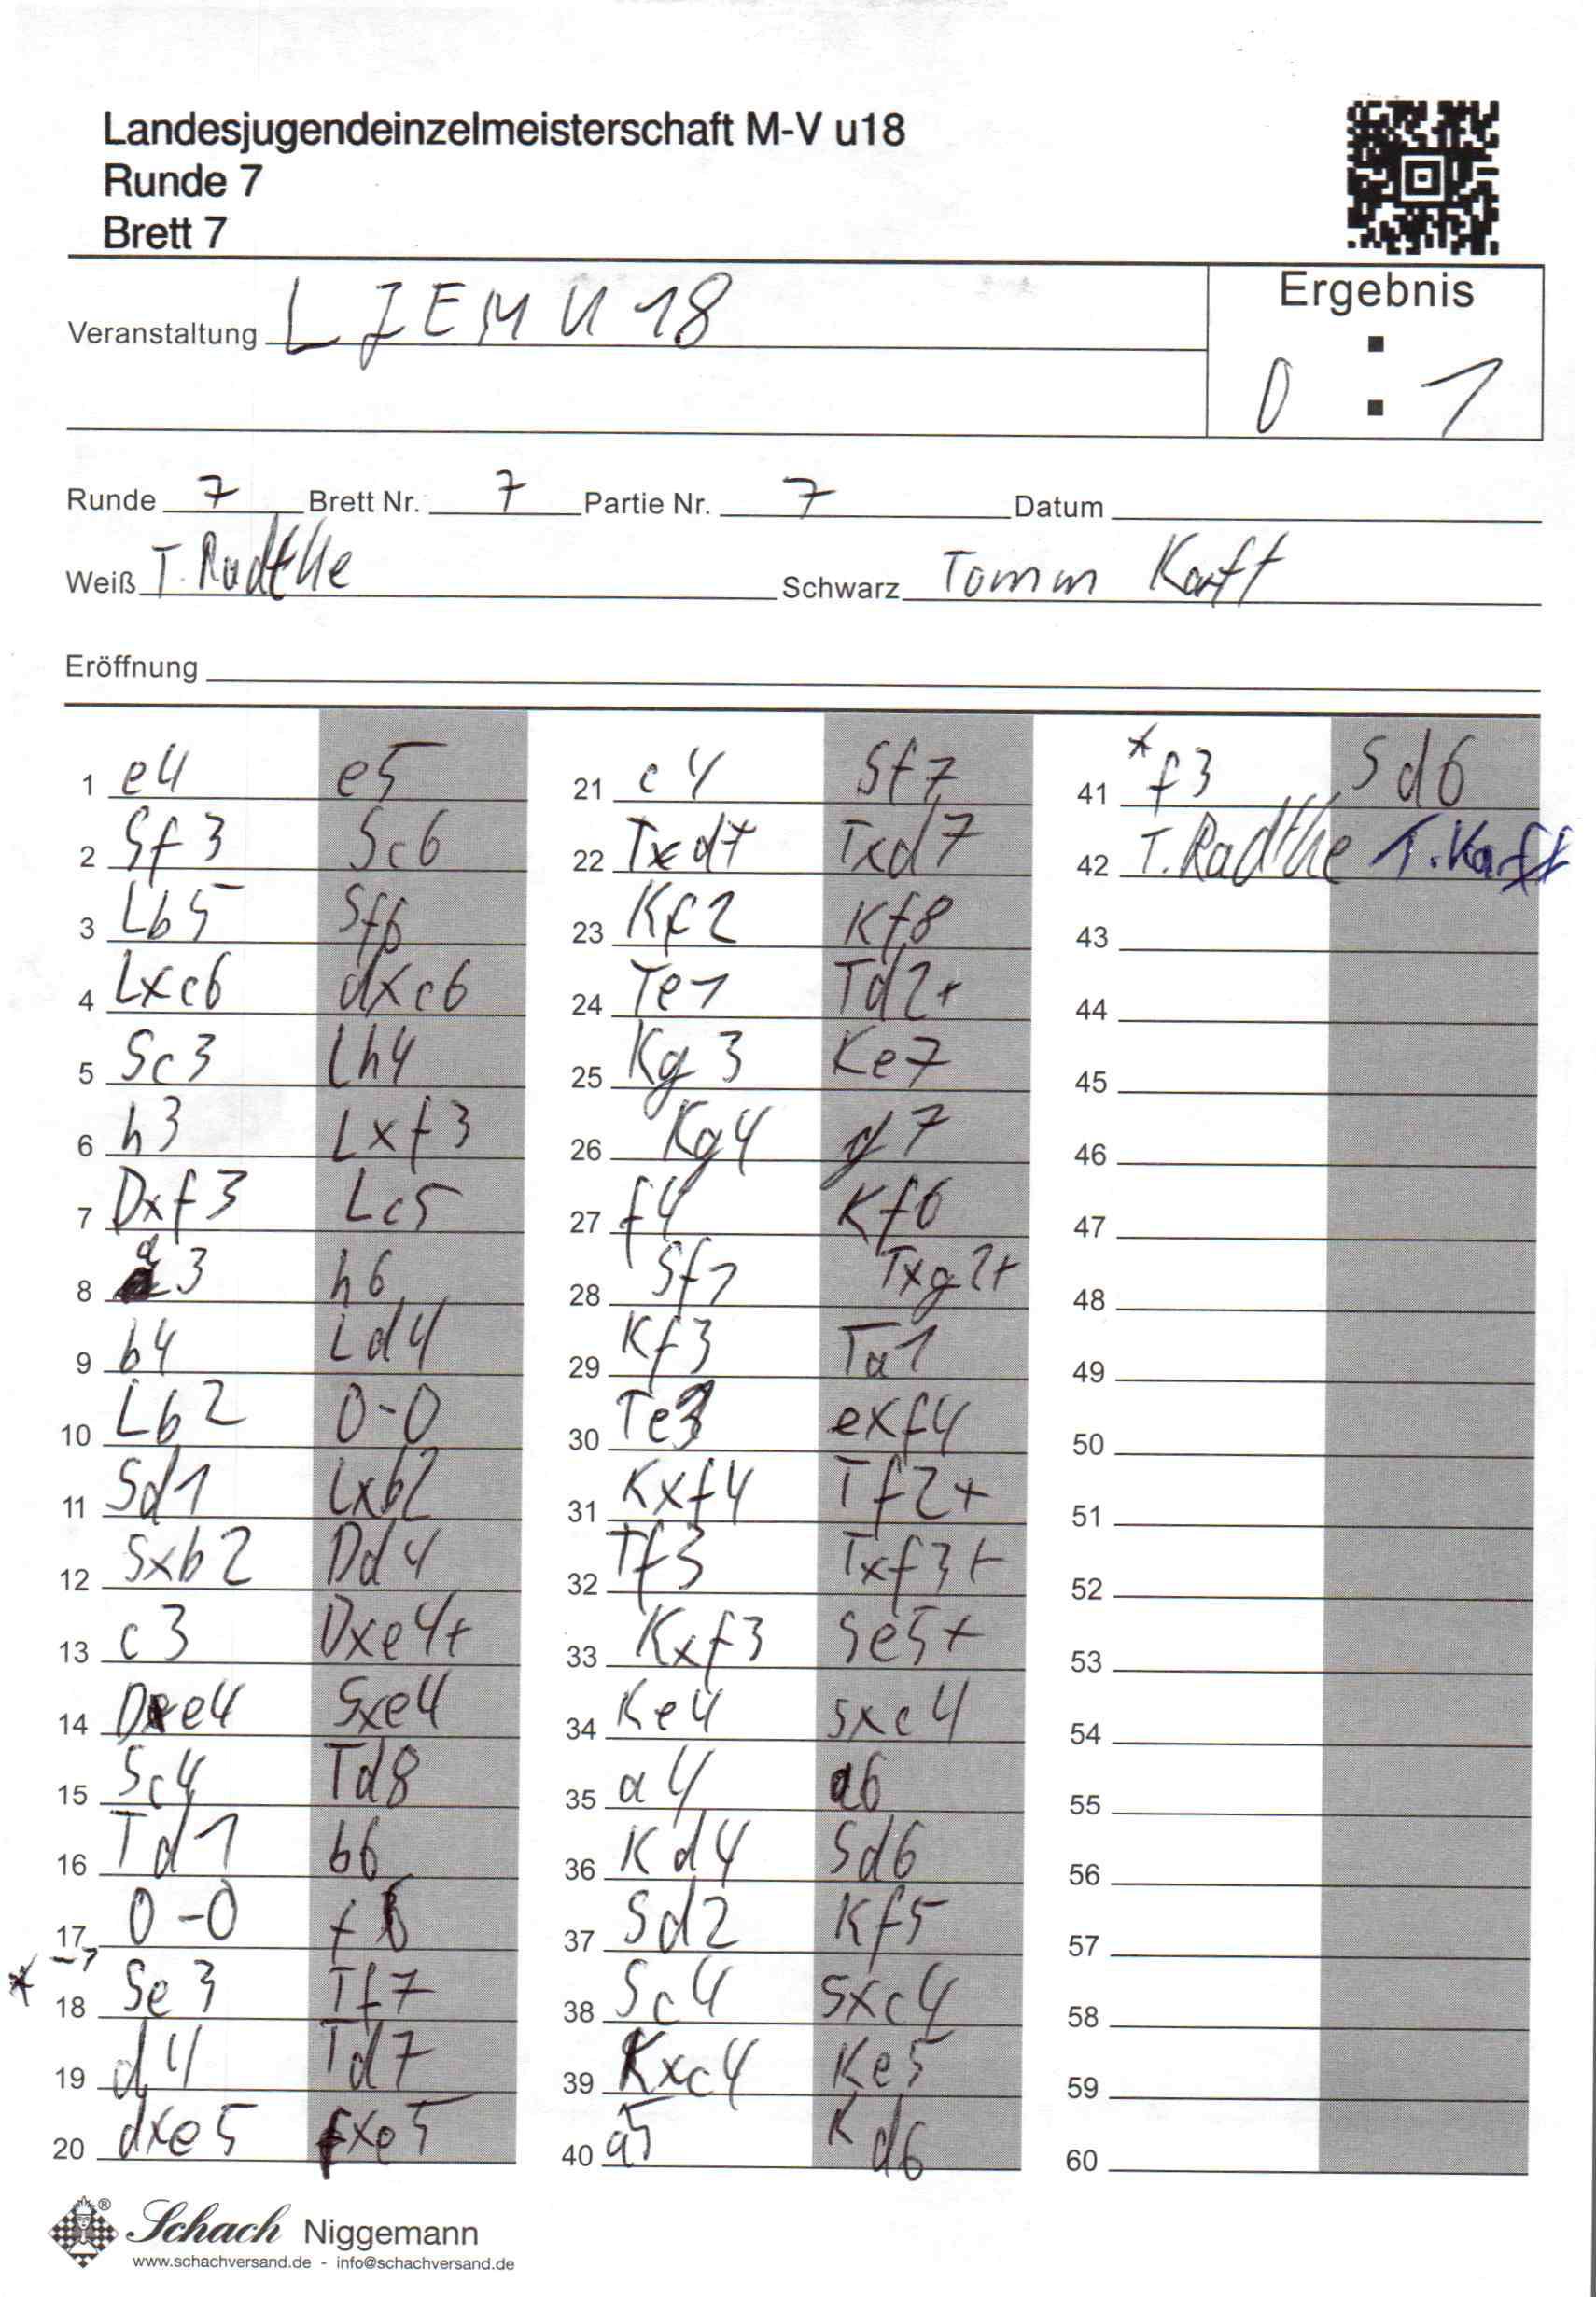 Landesjugendeinzelmeisterschaft M-V u18
Runde 7
Brett 7
Veranstaltung LJEM U 18
Ergebnis
0 : 1
Runde 7 Brett Nr. 7 Partie Nr. 7 Datum
Weiß T. Radtke Schwarz Tomm Karft
Eröffnung
1 e4 e5
2 Sf3 Sc6
3 Lb5 Sf6
4 Lxc6 dxc6
5 Sc3 Lh4
6 h3 Lxf3
7 Dxf3 Lc5
8 d3 h6
9 b4 Ld4
10 Lb2 0-0
11 Sd1 Lxb2
12 Sxb2 Dd4
13 c3 Dxe4+
14 Dxe4 Sxe4
15 Sc4 Td8
16 Td1 b6
17 0-0 f6
* -> 18 Se3 Tf7
19 d4 Td7
20 dxe5 fxe5
21 c4 Sf7
22 Txd7 Txd7
23 Kf2 Kf8
24 Te1 Td2+
25 Kg3 Ke7
26 Kg4 g7
27 f4 Kf6
28 Sf1 Txg2+
29 Kf3 Ta1
30 Te3 exf4
31 Kxf4 Tf2+
32 Tf3 Txf3+
33 Kxf3 Se5+
34 Ke4 Sxc4
35 a4 a6
36 Kd4 Sd6
37 Sd2 Kf5
38 Sc4 Sxc4
39 Kxc4 Ke5
40 a5 Kd6
41 *f3 Sd6
42 T. Radtke T. Karft
43
44
45
46
47
48
49
50
51
52
53
54
55
56
57
58
59
60
Schach Niggemann
www.schachversand.de - info@schachversand.de